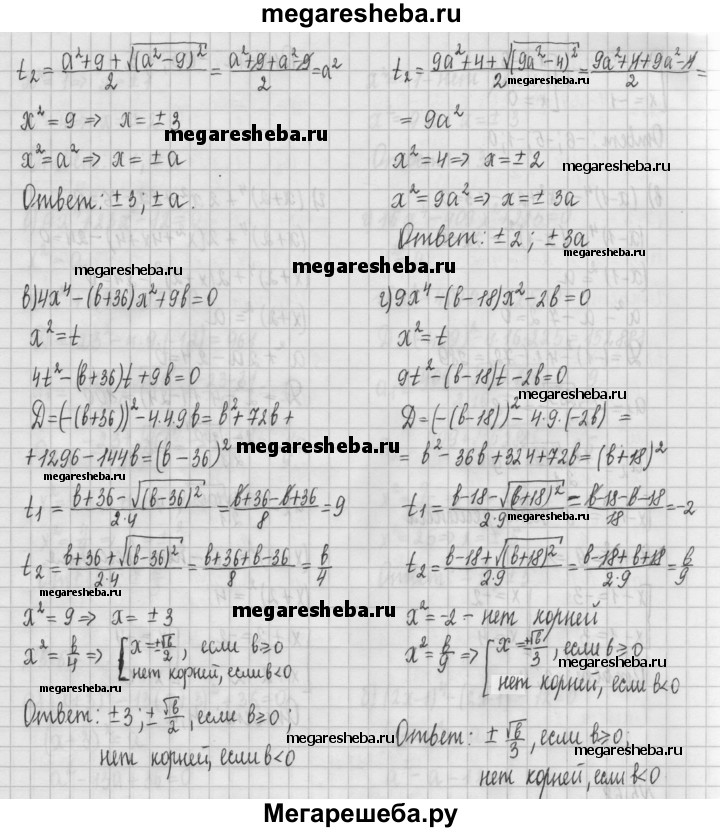 megaresheba.ru
t₂ = (a²+9+√(a²−9)²)/2 = (a²+9+a²−9)/2 = a²
x² = 9 => x = ±3
megaresheba.ru
x² = a² => x = ±a
Ответ: ±3; ±a.
t₂ = (9a²+4+√(9a²−4)²)/2 = (9a²+4+9a²−4)/2 =
megaresheba.ru
= 9a²
x² = 4 => x = ±2
megaresheba.ru
x² = 9a² => x = ±3a
Ответ: ±2; ±3a
megaresheba.ru
megaresheba.ru
megaresheba.ru
в) 4x⁴−(b+36)x²+9b=0
x² = t
4t²−(b+36)t+9b=0
D=(−(b+36))²−4·4·9b=b²+72b+
+1296−144b=(b−36)²
megaresheba.ru
megaresheba.ru
t₁ = (b+36−√(b−36)²)/(2·4) = (b+36−b+36)/8 = 9
t₂ = (b+36+√(b−36)²)/(2·4) = (b+36+b−36)/8 = b/4
x² = 9 => x = ±3
megaresheba.ru
x² = b/4 => [x=±√b/2, если b≥0
нет корней, если b<0
megaresheba.ru
Ответ: ±3; ±√b/2, если b≥0;
megaresheba.ru
нет корней, если b<0
г) 9x⁴−(b−18)x²−2b=0
x² = t
9t²−(b−18)t−2b=0
D=(−(b−18))²−4·9·(−2b) =
= b²−36b+324+72b=(b+18)²
megaresheba.ru
t₁ = (b−18−√(b+18)²)/(2·9) = (b−18−b−18)/18 = −2
megaresheba.ru
t₂ = (b−18+√(b+18)²)/(2·9) = (b−18+b+18)/(2·9) = b/9
x² = −2 − нет корней
x² = b/9 => [x=±√b/3, если b≥0
megaresheba.ru
нет корней, если b<0
Ответ: ±√b/3, если b≥0;
megaresheba.ru
нет корней, если b<0
Мегарешеба.ру